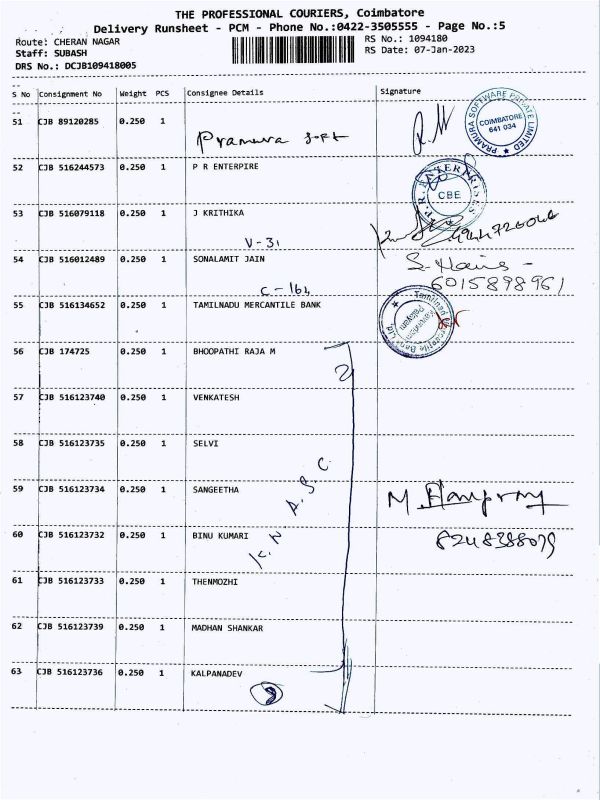 THE PROFESSIONAL COURIERS, Coimbatore
Delivery Runsheet - PCM - Phone No.:0422-3505555 - Page No.:5
Route: CHERAN NAGAR RS No.: 1094180
Staff: SUBASH RS Date: 07-Jan-2023
DRS No.: DCJB109418005
S No Consignment No Weight PCS Consignee Details Signature
51 CJB 89120285 0.250 1
Pramura Soft
PRAMURA SOFTWARE PRIVATE LIMITED
COIMBATORE
641 034
52 CJB 516244573 0.250 1 P R ENTERPIRE
P.R. ENTERPRISES
CBE
53 CJB 516079118 0.250 1 J KRITHIKA
V-31
54 CJB 516012489 0.250 1 SONALAMIT JAIN
C-164
6015898961
55 CJB 516134652 0.250 1 TAMILNADU MERCANTILE BANK
Tamilnad Mercantile Bank Ltd
56 CJB 174725 0.250 1 BHOOPATHI RAJA M
57 CJB 516123740 0.250 1 VENKATESH
58 CJB 516123735 0.250 1 SELVI
59 CJB 516123734 0.250 1 SANGEETHA
K. N A. S. C.
60 CJB 516123732 0.250 1 BINU KUMARI
8248388079
61 CJB 516123733 0.250 1 THENMOZHI
62 CJB 516123739 0.250 1 MADHAN SHANKAR
63 CJB 516123736 0.250 1 KALPANADEV